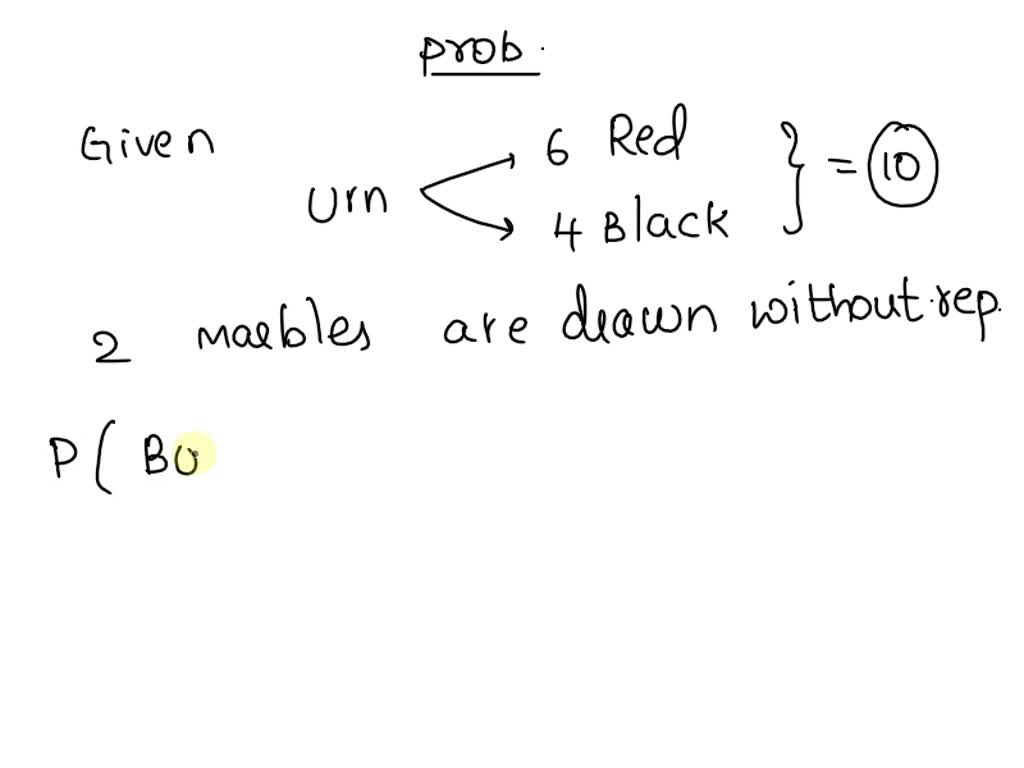 prob.
Given
Urn 6 Red
4 Black } = 10
2 maebles are drawn without.rep.
P( Bo